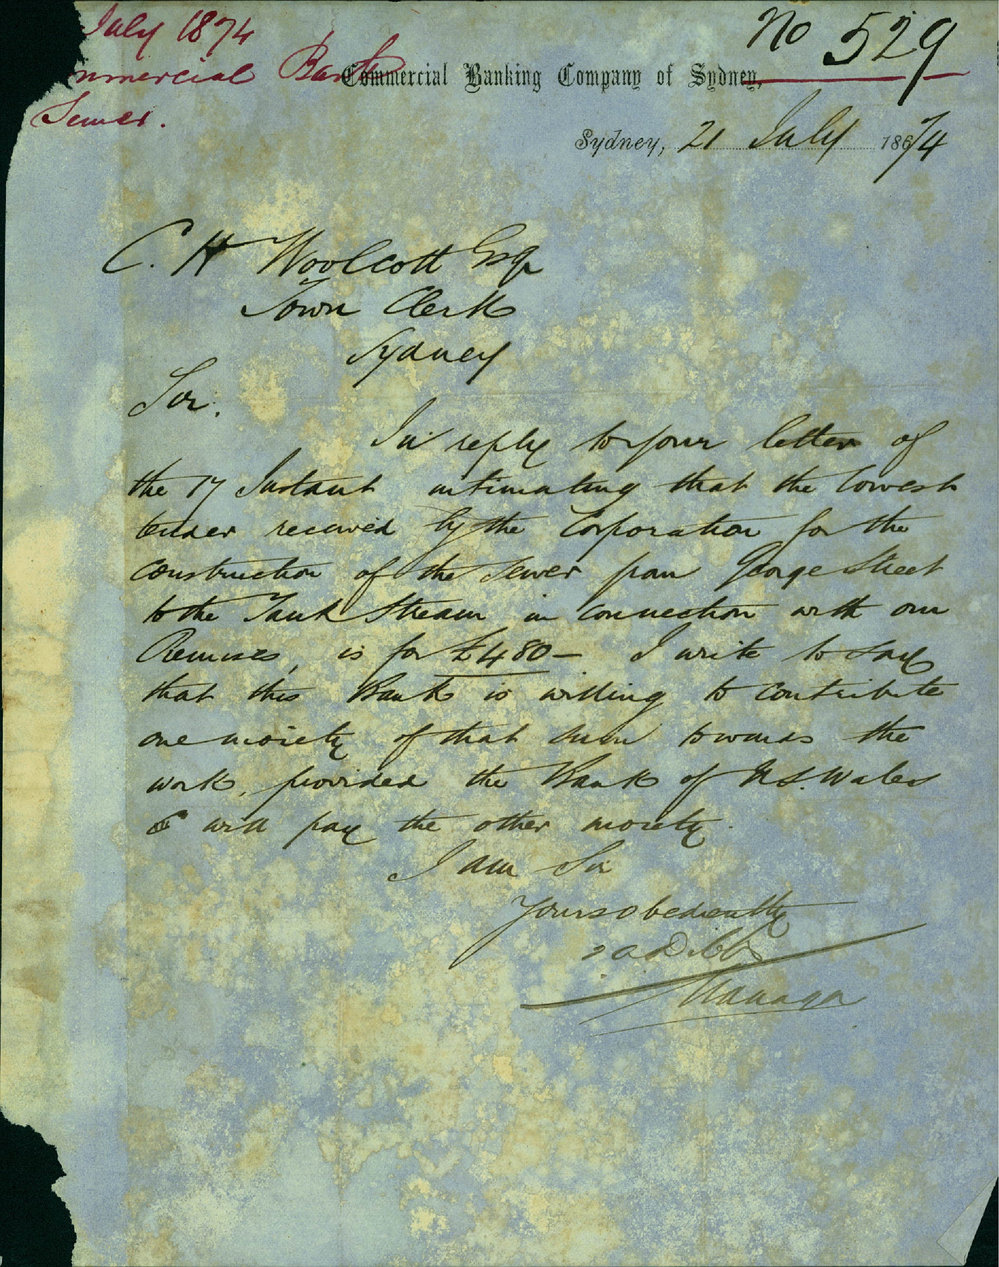 July 1874
mmercial Bank
Sewer.
No 529
Commercial Banking Company of Sydney,
Sydney, 21 July 1874
C. H Woolcott Esqr
Town Clerk
Sydney
Sir.
In reply to your letter of
the 17 Instant intimating that the lowest
tender received by the Corporation for the
construction of the Sewer from George Street
to the Tank Stream in connection with our
Premises, is for £480 – I write to say
that this Bank is willing to contribute
one moiety of that sum towards the
work, provided the Bank of N.S. Wales
will pay the other moiety.
I am Sir
Yours obediently
T A Dibbs
Manager